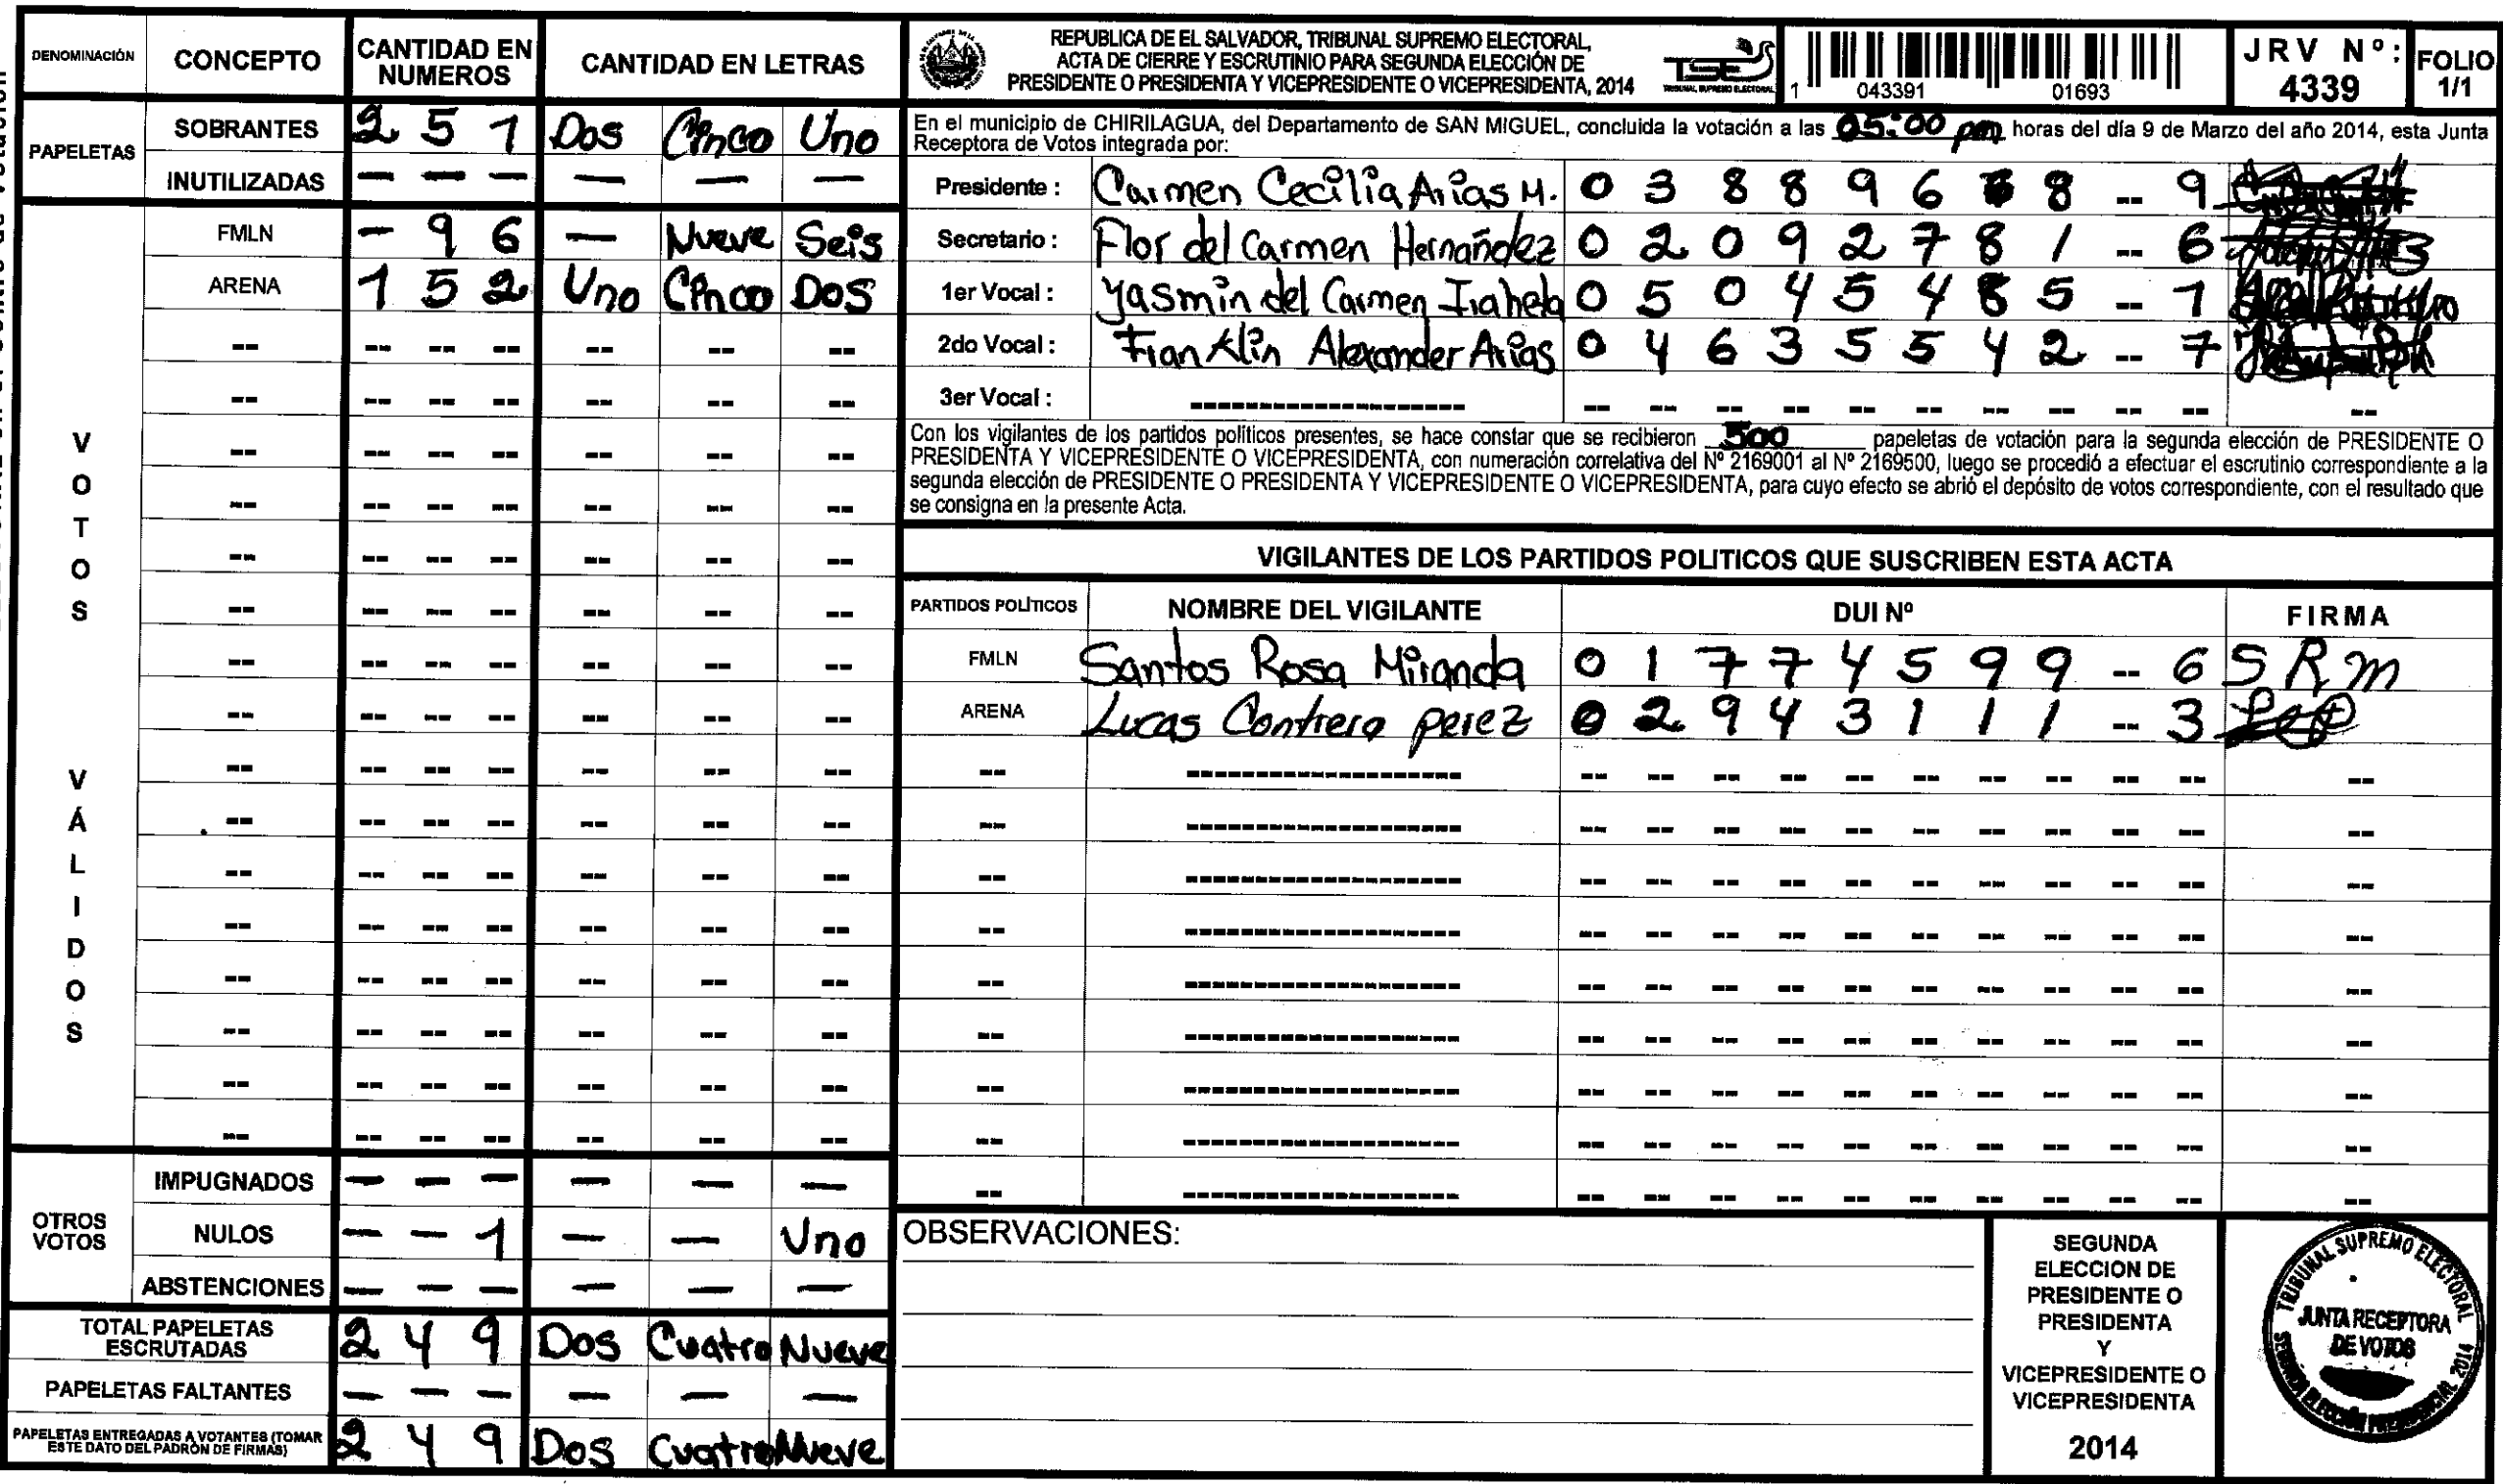 DENOMINACIÓN CONCEPTO CANTIDAD EN NUMEROS CANTIDAD EN LETRAS
PAPELETAS
SOBRANTES 2 5 1 Dos Cinco Uno
INUTILIZADAS — — — — — —
VOTOS VÁLIDOS
FMLN — 9 6 — Nueve Seis
ARENA 1 5 2 Uno Cinco Dos
OTROS VOTOS
IMPUGNADOS — — — — — —
NULOS — — 1 — — Uno
ABSTENCIONES — — — — — —
TOTAL PAPELETAS ESCRUTADAS 2 4 9 Dos Cuatro Nueve
PAPELETAS FALTANTES — — — — — —
PAPELETAS ENTREGADAS A VOTANTES (TOMAR ESTE DATO DEL PADRÓN DE FIRMAS) 2 4 9 Dos Cuatro Nueve
REPUBLICA DE EL SALVADOR, TRIBUNAL SUPREMO ELECTORAL,
ACTA DE CIERRE Y ESCRUTINIO PARA SEGUNDA ELECCIÓN DE
PRESIDENTE O PRESIDENTA Y VICEPRESIDENTE O VICEPRESIDENTA, 2014
TSE
TRIBUNAL SUPREMO ELECTORAL
1 043391 01693
JRV Nº: 4339
FOLIO 1/1
En el municipio de CHIRILAGUA, del Departamento de SAN MIGUEL, concluida la votación a las 05:00 pm horas del día 9 de Marzo del año 2014, esta Junta
Receptora de Votos integrada por:
Presidente : Carmen Cecilia Arias M. 0 3 8 8 9 6 8 -- 9
Secretario : Flor del Carmen Hernández 0 2 0 9 2 7 8 1 -- 6
1er Vocal : Yasmin del Carmen Iraheta 0 5 0 4 5 4 8 5 -- 1
2do Vocal : Franklin Alexander Arias 0 4 6 3 5 5 4 2 -- 7
3er Vocal :
Con los vigilantes de los partidos políticos presentes, se hace constar que se recibieron 500 papeletas de votación para la segunda elección de PRESIDENTE O
PRESIDENTA Y VICEPRESIDENTE O VICEPRESIDENTA, con numeración correlativa del Nº 2169001 al Nº 2169500, luego se procedió a efectuar el escrutinio correspondiente a la
segunda elección de PRESIDENTE O PRESIDENTA Y VICEPRESIDENTE O VICEPRESIDENTA, para cuyo efecto se abrió el depósito de votos correspondiente, con el resultado que
se consigna en la presente Acta.
VIGILANTES DE LOS PARTIDOS POLITICOS QUE SUSCRIBEN ESTA ACTA
PARTIDOS POLÍTICOS NOMBRE DEL VIGILANTE DUI Nº FIRMA
FMLN Santos Rosa Miranda 0 1 7 7 4 5 9 9 -- 6 S R m
ARENA Lucas Contrera perez 0 2 9 4 3 1 1 1 -- 3
OBSERVACIONES:
SEGUNDA
ELECCION DE
PRESIDENTE O
PRESIDENTA
Y
VICEPRESIDENTE O
VICEPRESIDENTA
2014
TRIBUNAL SUPREMO ELECTORAL
JUNTA RECEPTORA
DE VOTOS
SEGUNDA ELECCIÓN PRESIDENCIAL 2014